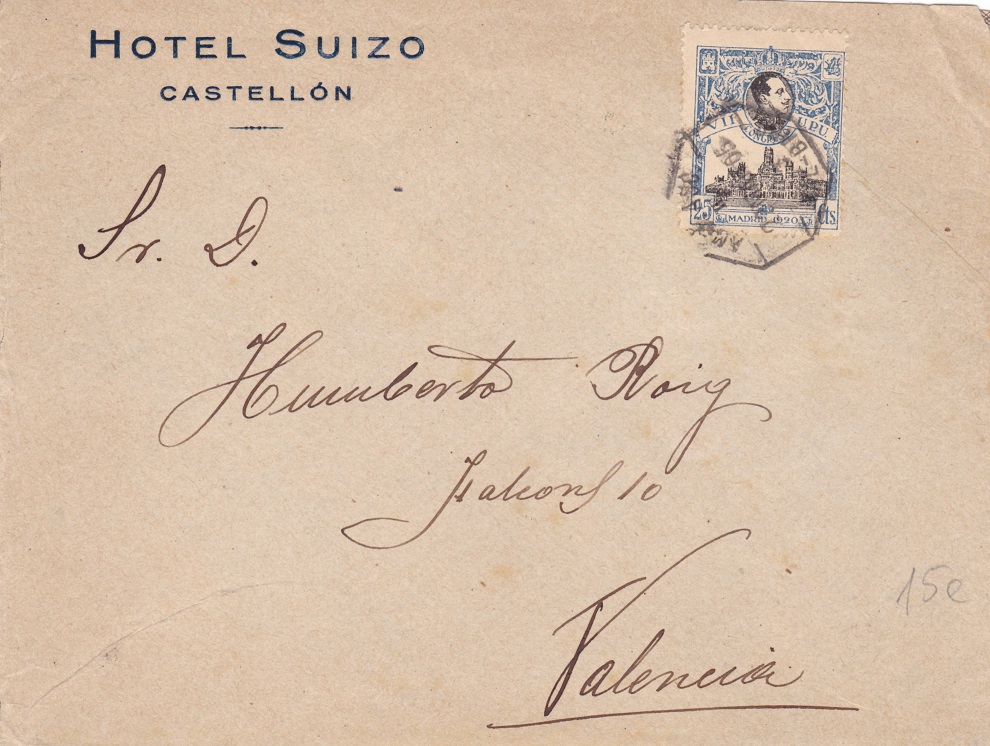 HOTEL SUIZO
CASTELLÓN
VII CONGRESO UPU
25 Cts
MADRID 1920
Sr. D.
Humberto Roig
10
Valencia
15e